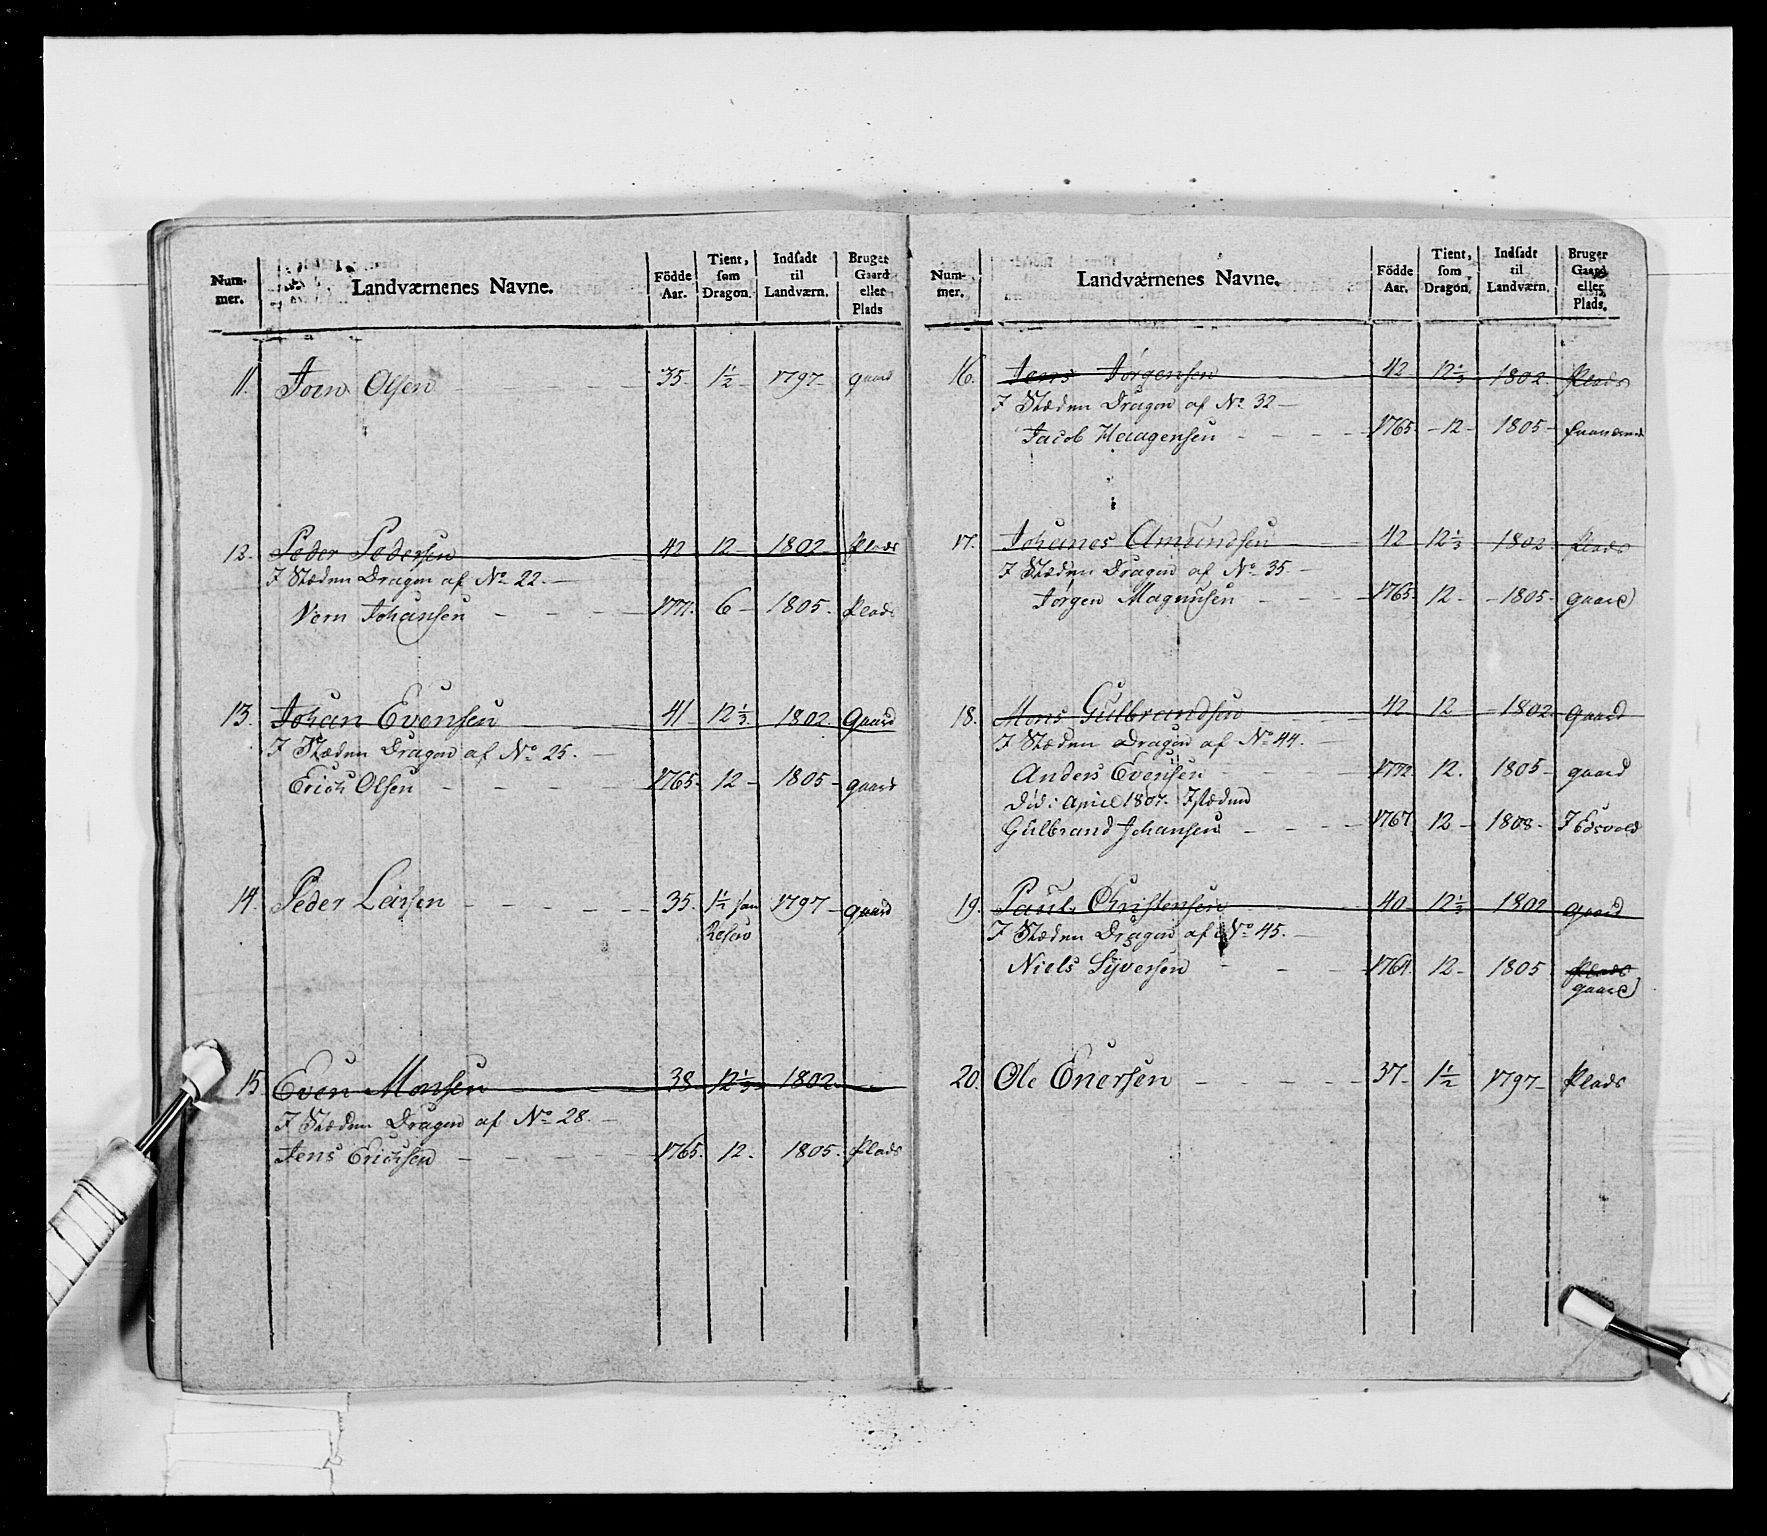 Num-
mer.
Landværnenes Navne.
Födde
Aar.
Tient,
som
Dragon.
Indsadt
til
Landværn.
Bruget
Gaard
eller
Plads
11. Joen Olsen 35. 1½ 1797 gaard
12. Peder Pedersen 42 12 1802 Plads
I Stæden Dragon af No 22.
Johansen 1771. 6 1805. Plads
13. Johan Evensen 41 12⅓ 1802 Gaard
I Stæden Dragon af No 25.
Erich Olsen 1765. 12 1805 gaard
14. Peder Larsen 35. 1½ 1797 gaard
15 Even Monsen 38 12⅓ 1802
I Stæden Dragon af No 28.
Jens Erichsen 1765. 12. 1805. Plads
Num-
mer.
Landværnenes Navne.
Födde
Aar.
Tient,
som
Dragon.
Indsadt
til
Landværn.
Bruger
Gaard
eller
Plads.
16. Jens Jörgensen 42 12⅓ 1802. Plads
I Stæden Dragon af No. 32
Jacob 1765. 12 1805
17. Johanes Amundsen 42 12⅓ 1802 Plads
I Stæden Dragon af No. 35
Jörgen Magnusen 1765. 12. 1805. gaard
18. Mons Gulbrandsen 42 12 1802 Gaard
I Stæden Dragon af No 44.
Anders Evensen 1772 12. 1805 gaard
Död: April 1807. Istæden
Gulbrand Johansen 1767 12 1808. I Edsvold
19. Paul Christensen 40 12⅓ 1802 Gaard
I Stæden Dragon af No 45.
Niels Syversen 1764. 12 1805 Plads
gaard
20. Ole Enersen 37 1½ 1797 Plads